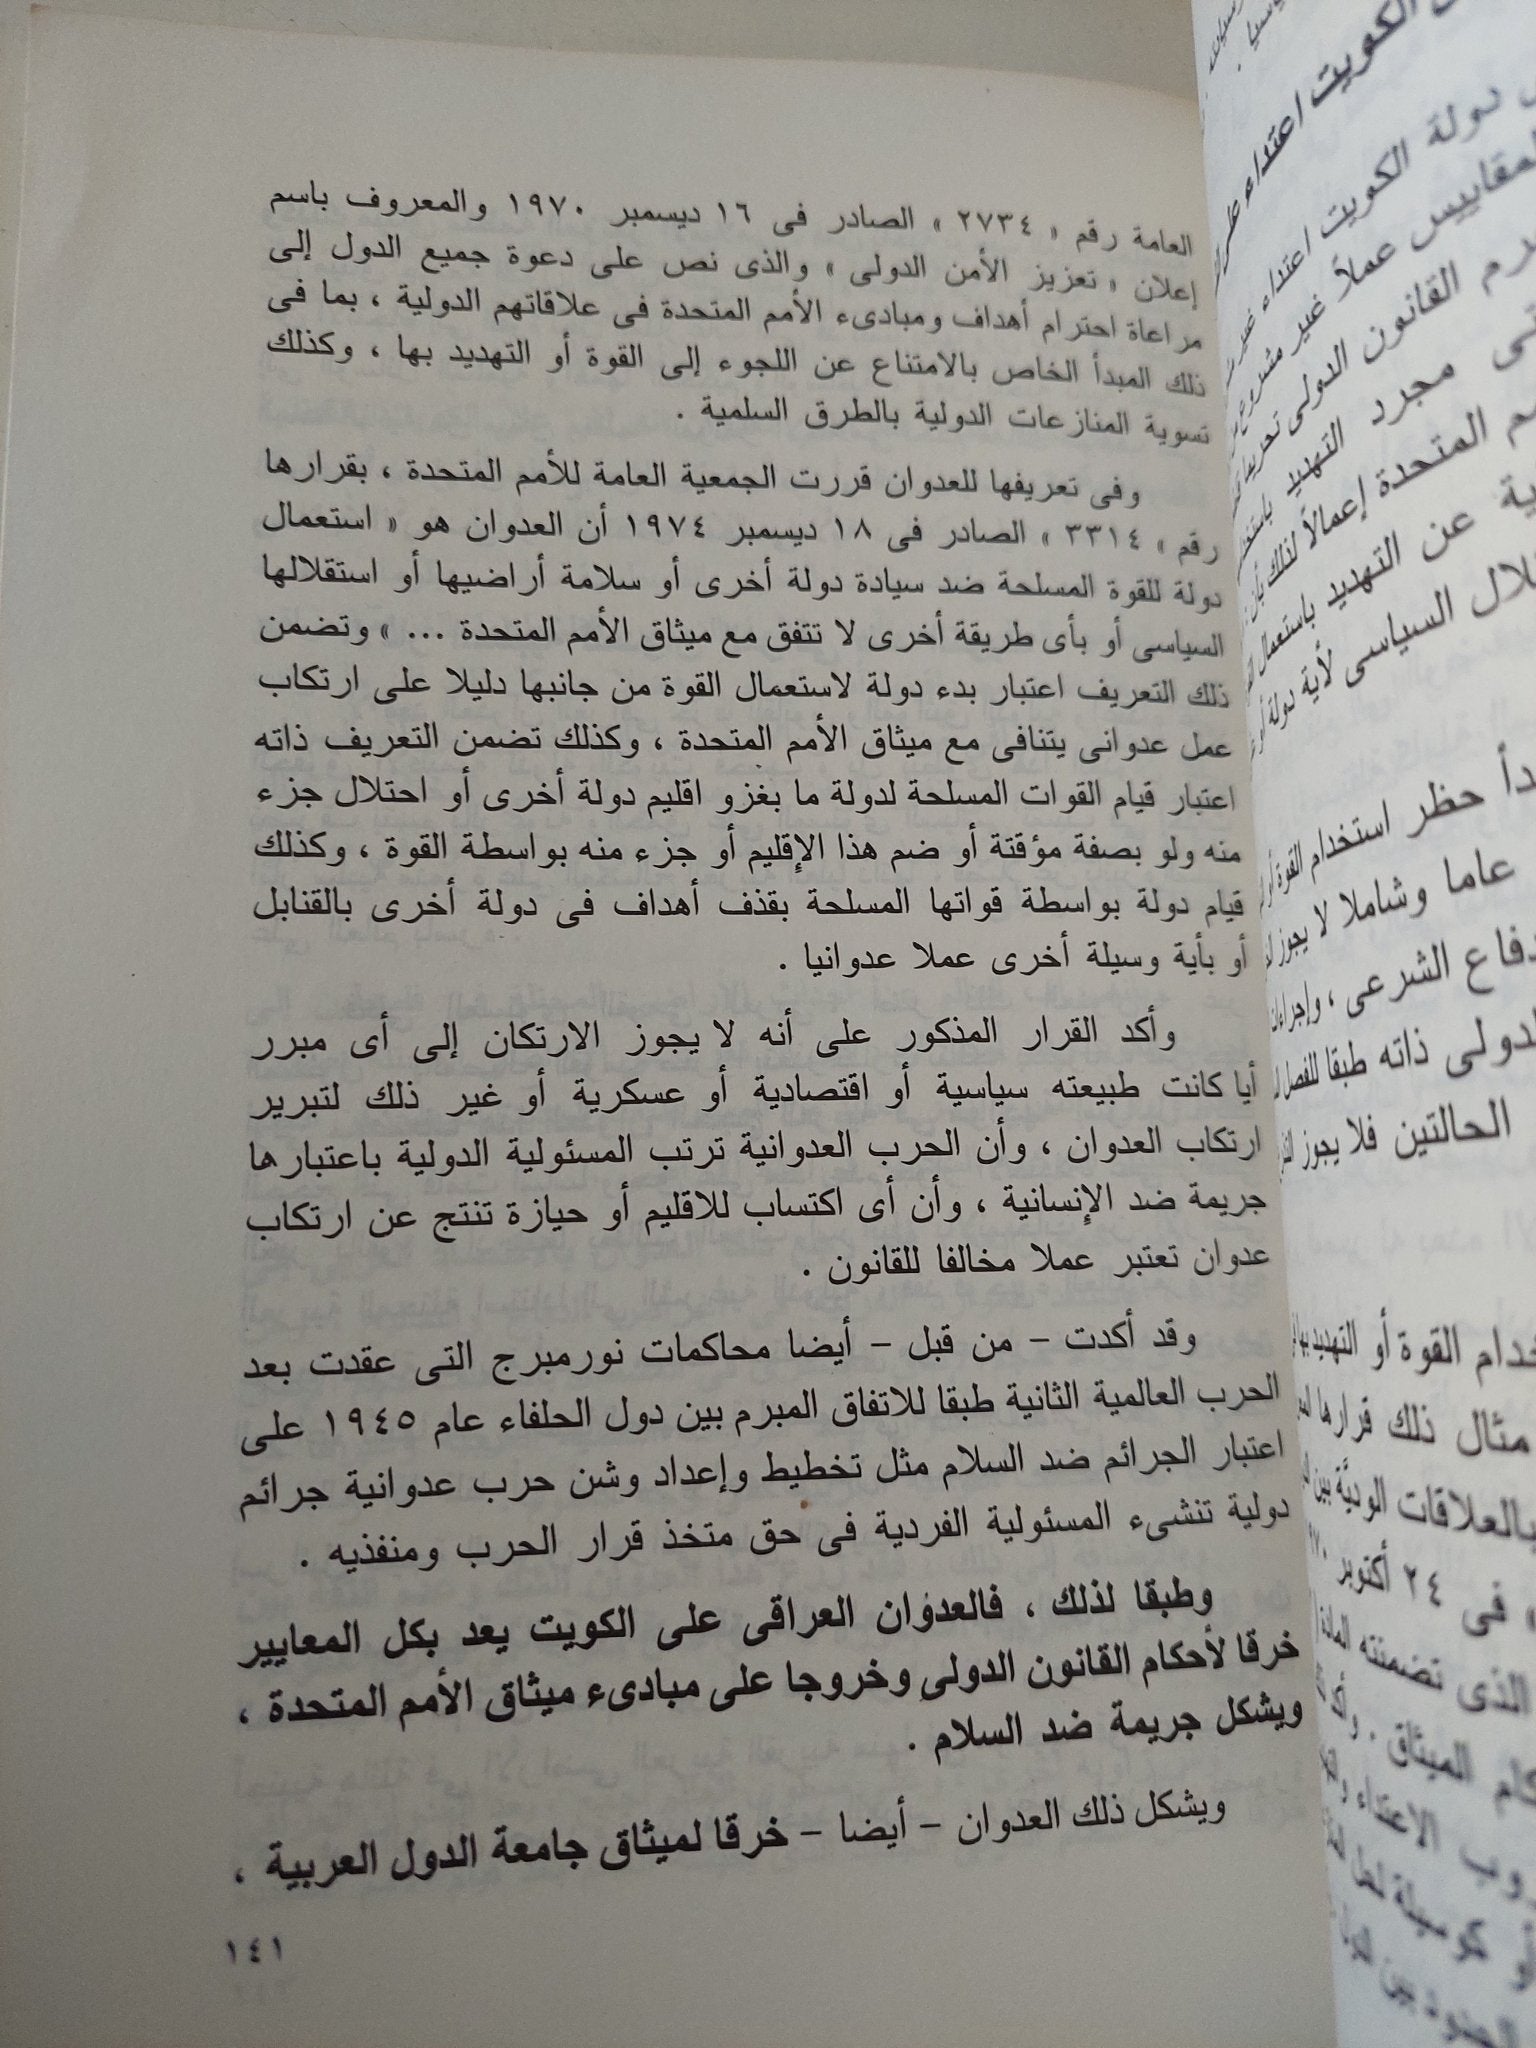 العامة رقم « ٢٧٣٤ » الصادر فى ١٦ ديسمبر ١٩٧٠ والمعروف باسم
إعلان « تعزيز الأمن الدولى » والذى نص على دعوة جميع الدول إلى
مراعاة احترام أهداف ومبادىء الأمم المتحدة فى علاقاتهم الدولية ، بما فى
ذلك المبدأ الخاص بالامتناع عن اللجوء إلى القوة أو التهديد بها ، وكذلك
تسوية المنازعات الدولية بالطرق السلمية .
وفى تعريفها للعدوان قررت الجمعية العامة للأمم المتحدة ، بقرارها
رقم « ٣٣١٤ » الصادر فى ١٨ ديسمبر ١٩٧٤ أن العدوان هو « استعمال
دولة للقوة المسلحة ضد سيادة دولة أخرى أو سلامة أراضيها أو استقلالها
السياسى أو بأى طريقة أخرى لا تتفق مع ميثاق الأمم المتحدة ... » وتضمن
ذلك التعريف اعتبار بدء دولة لاستعمال القوة من جانبها دليلا على ارتكاب
عمل عدوانى يتنافى مع ميثاق الأمم المتحدة ، وكذلك تضمن التعريف ذاته
اعتبار قيام القوات المسلحة لدولة ما بغزو اقليم دولة أخرى أو احتلال جزء
منه ولو بصفة مؤقتة أو ضم هذا الإقليم أو جزء منه بواسطة القوة ، وكذلك
قيام دولة بواسطة قواتها المسلحة بقذف أهداف فى دولة أخرى بالقنابل
أو بأية وسيلة أخرى عملا عدوانيا .
وأكد القرار المذكور على أنه لا يجوز الارتكان إلى أى مبرر
أيا كانت طبيعته سياسية أو اقتصادية أو عسكرية أو غير ذلك لتبرير
ارتكاب العدوان ، وأن الحرب العدوانية ترتب المسئولية الدولية باعتبارها
جريمة ضد الإنسانية ، وأن أى اكتساب للاقليم أو حيازة تنتج عن ارتكاب
عدوان تعتبر عملا مخالفا للقانون .
وقد أكدت – من قبل – أيضا محاكمات نورمبرج التى عقدت بعد
الحرب العالمية الثانية طبقا للاتفاق المبرم بين دول الحلفاء عام ١٩٤٥ على
اعتبار الجرائم ضد السلام مثل تخطيط وإعداد وشن حرب عدوانية جرائم
دولية تنشىء المسئولية الفردية فى حق متخذ قرار الحرب ومنفذيه .
وطبقا لذلك ، فالعدوان العراقى على الكويت يعد بكل المعايير
خرقا لأحكام القانون الدولى وخروجا على مبادىء ميثاق الأمم المتحدة ،
ويشكل جريمة ضد السلام .
ويشكل ذلك العدوان – أيضا – خرقا لميثاق جامعة الدول العربية ،
١٤١
الكويت اعتداء على
دولة الكويت اعتداء غير
المقاييس عملاً غير مشروع
القانون الدولى
مجرد التهديد
المتحدة إعمالاً لذلك بأن
عن التهديد باستعمال
السياسى لأية دولة
حظر استخدام القوة أو
عاما وشاملا لا يجوز
الشرعى ، وإجراءات
ذاته طبقا للفصل
الحالتين فلا يجوز
القوة أو التهديد بها
مثال ذلك قرارها
بالعلاقات الوديَّة بين
فى ٢٤ أكتوبر
الذى تضمنته
الميثاق .
الاعتداء